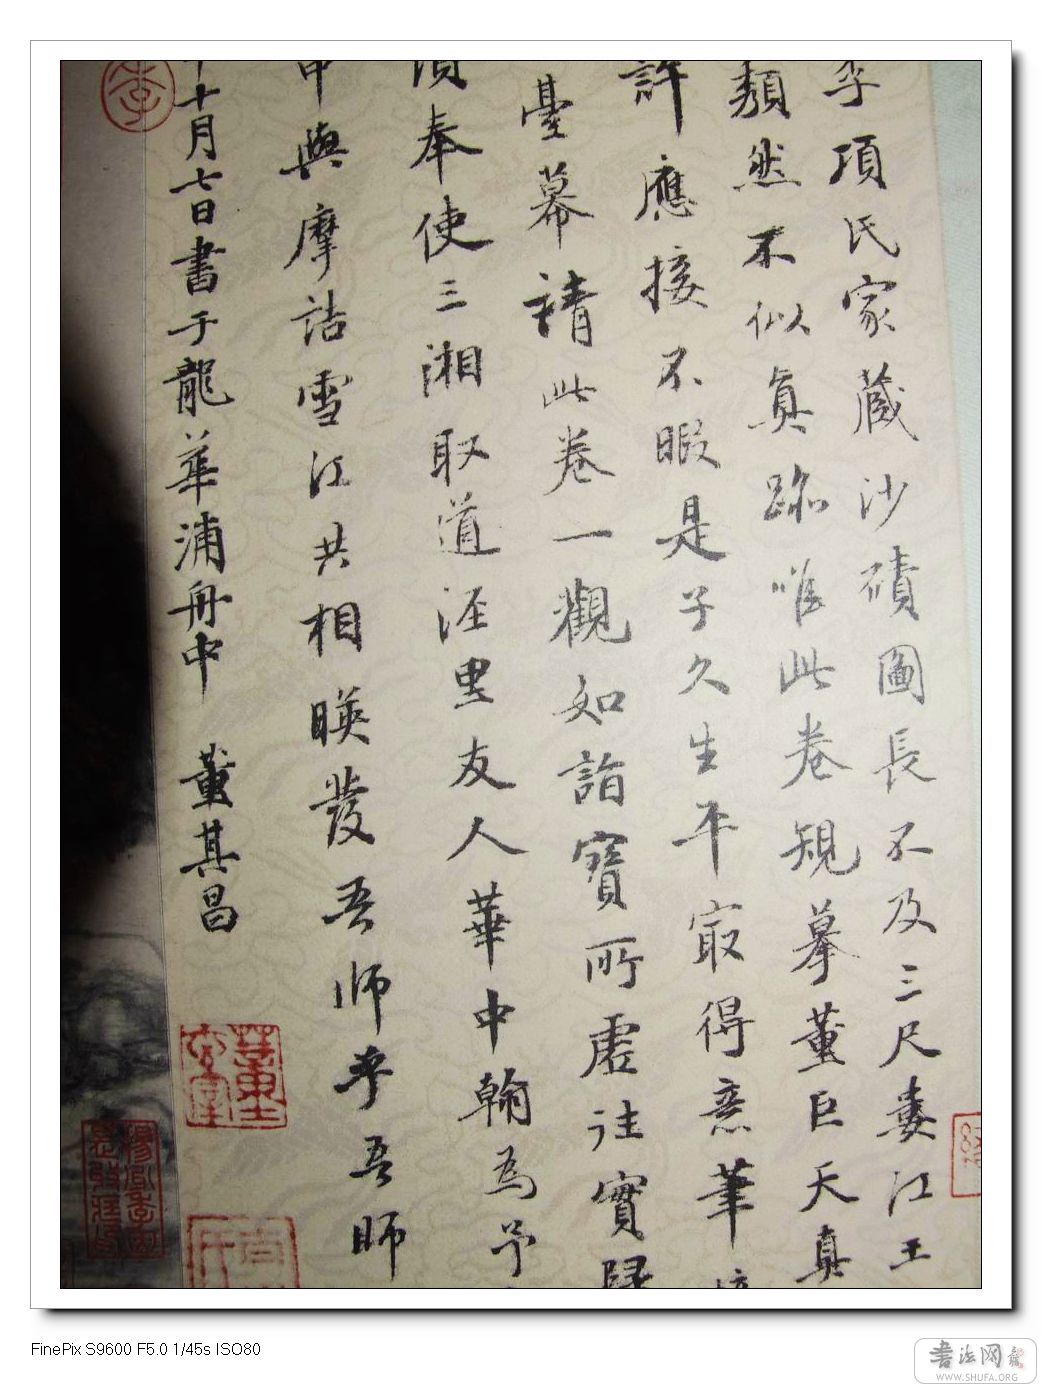 李項氏家藏沙磧圖長不及三尺婁江王
頮然不似真跡唯此卷規摹董巨天真
許應接不暇是子久生平㝡得意筆
臺幕請此卷一觀如詣寶所虛往實歸
須奉使三湘取道涇里友人華中翰為予
中與摩詰雪江共相暎發吾師乎吾師
十月七日書于龍華浦舟中 董其昌
FinePix S9600 F5.0 1/45s ISO80
書法网
WWW.SHUFA.ORG